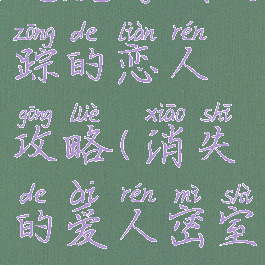 zōng de liàn rén
踪的恋人
gōng lüè xiāo shī
攻略(消失
de ài rén mì shì
的爱人密室